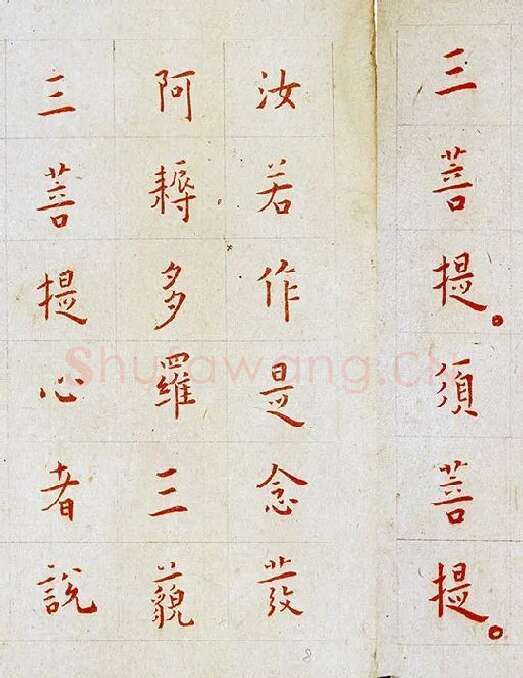 三菩提。須菩提。
汝若作是念發
阿耨多羅三藐
三菩提心者說
Shufawang.Cn
8